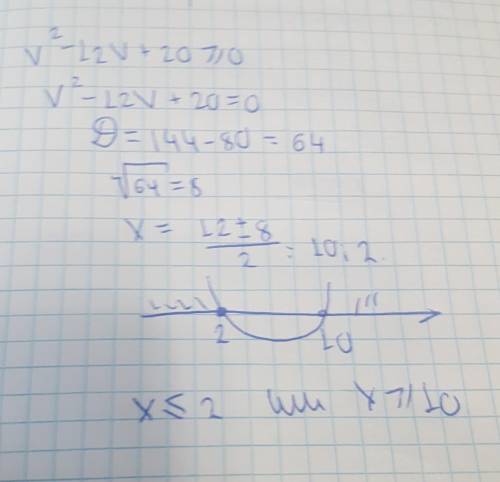 v² - 12v + 20 ⩾ 0
v² - 12v + 20 = 0
D = 144 - 80 = 64
√64 = 8
x = (12 ± 8)/2 = 10; 2.
2 10
x ≤ 2 или x ⩾ 10